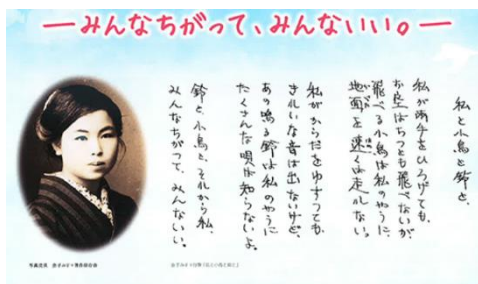 ―みんなちがって、みんないい。―
私と小鳥と鈴と、
私が両手をひろげても、
お空はちっとも飛べないが、
飛べる小鳥は私のやうに、
地面を速くは走れない。
私がからだをゆすっても、
きれいな音は出ないけど、
あの鳴る鈴は私のやうに
たくさんな唄は知らないよ。
鈴と、小鳥と、それから私、
みんなちがって、みんないい。